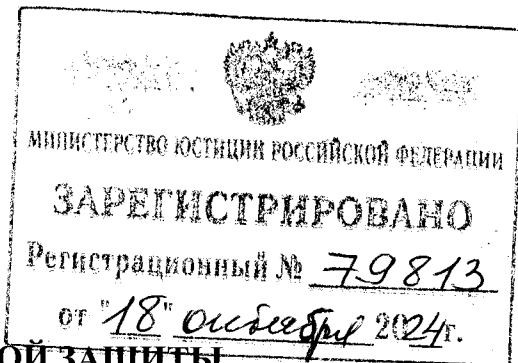 МИНИСТЕРСТВО ЮСТИЦИИ РОССИЙСКОЙ ФЕДЕРАЦИИ
ЗАРЕГИСТРИРОВАНО
Регистрационный № 79813
от "18" октября 2024г.
ОЙ ЗАЩИТЫ